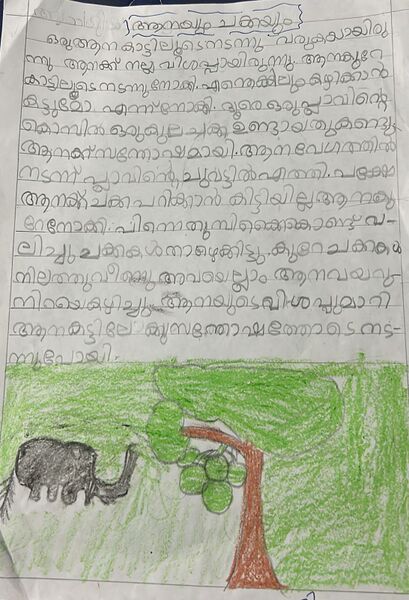 ആനയും ചക്കയും
ഒരു ആന കാട്ടിലൂടെ നടന്നു വരുകയായിരു
ന്നു ആനക്ക് നല്ല വിശപ്പായിരുന്നു. ആന കുറേ
കാട്ടിലൂടെ നടന്നു നോക്കി. എന്തെങ്കിലും കഴിക്കാൻ
കിട്ടുമോ എന്ന് നോക്കി. ദൂരെ ഒരു പ്ലാവിൻ്റെ
കൊമ്പിൽ ഒരു കുല ചക്ക ഉണ്ടായതു കണ്ടു.
ആനക്ക് സന്തോഷമായി. ആന വേഗത്തിൽ
നടന്ന് പ്ലാവിൻ്റെ ചുവട്ടിൽ എത്തി. പക്ഷേ
ആനക്ക് ചക്ക പറിക്കാൻ കിട്ടിയില്ല ആന കു
റേ നോക്കി. പിന്നെ തുമ്പിക്കൈകൊണ്ട് വ-
ലിച്ചു ചക്കകൾ താഴെക്കിട്ടു. കുറേ ചക്കകൾ
നിലത്തു വീണു അവയെല്ലാം ആന വയറു-
നിറയെ കഴിച്ചു. ആനയുടെ വിശപ്പു മാറി
ആന കട്ടിലേക്കു സന്തോഷത്തോടെ നട-
ന്നു പോയി.